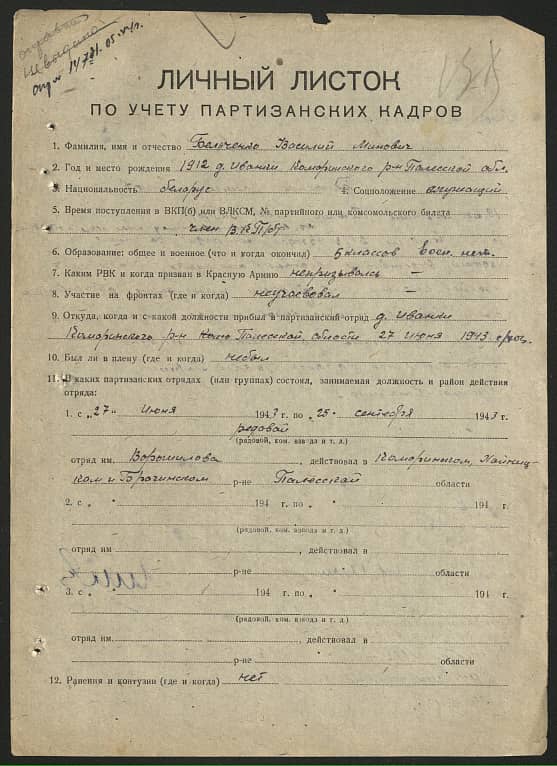 справка
отд № 147
ЛИЧНЫЙ ЛИСТОК
ПО УЧЕТУ ПАРТИЗАНСКИХ КАДРОВ
1. Фамилия, имя и отчество Василий Минович
2. Год и место рождения 1912 д. Иванки Комаринского р-н Полесской обл.
3. Национальность белорус 4. Соцположение служащий
5. Время поступления в ВКП(б) или ВЛКСМ, № партийного или комсомольского билета
член ВКП/б/
6. Образование: общее и военное (что и когда окончил) 6 классов воен. нет.
7. Каким РВК и когда призван в Красную Армию непризывалсь —
8. Участие на фронтах (где и когда) неучасвовал —
9. Откуда, когда и с какой должности прибыл в партизанский отряд д. Иванки
Комаринского р-н Полесской, области 27 июня 1943 года
10. Был ли в плену (где и когда) небыл
11. В каких партизанских отрядах (или группах) состоял, занимаемая должность и район действия
отряда:
1. с „27“ Июня 1943 г. по „25“ сентября 1943 г.
редовой
(рядовой, ком. взвода и т. д.)
отряд им. Ворошилова, действовал в Комаринском, Хойниц-
ком и Брагинском р-не Полесской области
2. с „ “ 194 г. по „ “ 194 г.
(рядовой, ком. взвода и т. д.)
отряд им. , действовал в
р-не области
3. с „ “ 194 г. по „ “ 194 г.
(рядовой, ком. взвода и т. д.)
отряд им. , действовал в
р-не области
12. Ранения и контузии (где и когда) нет